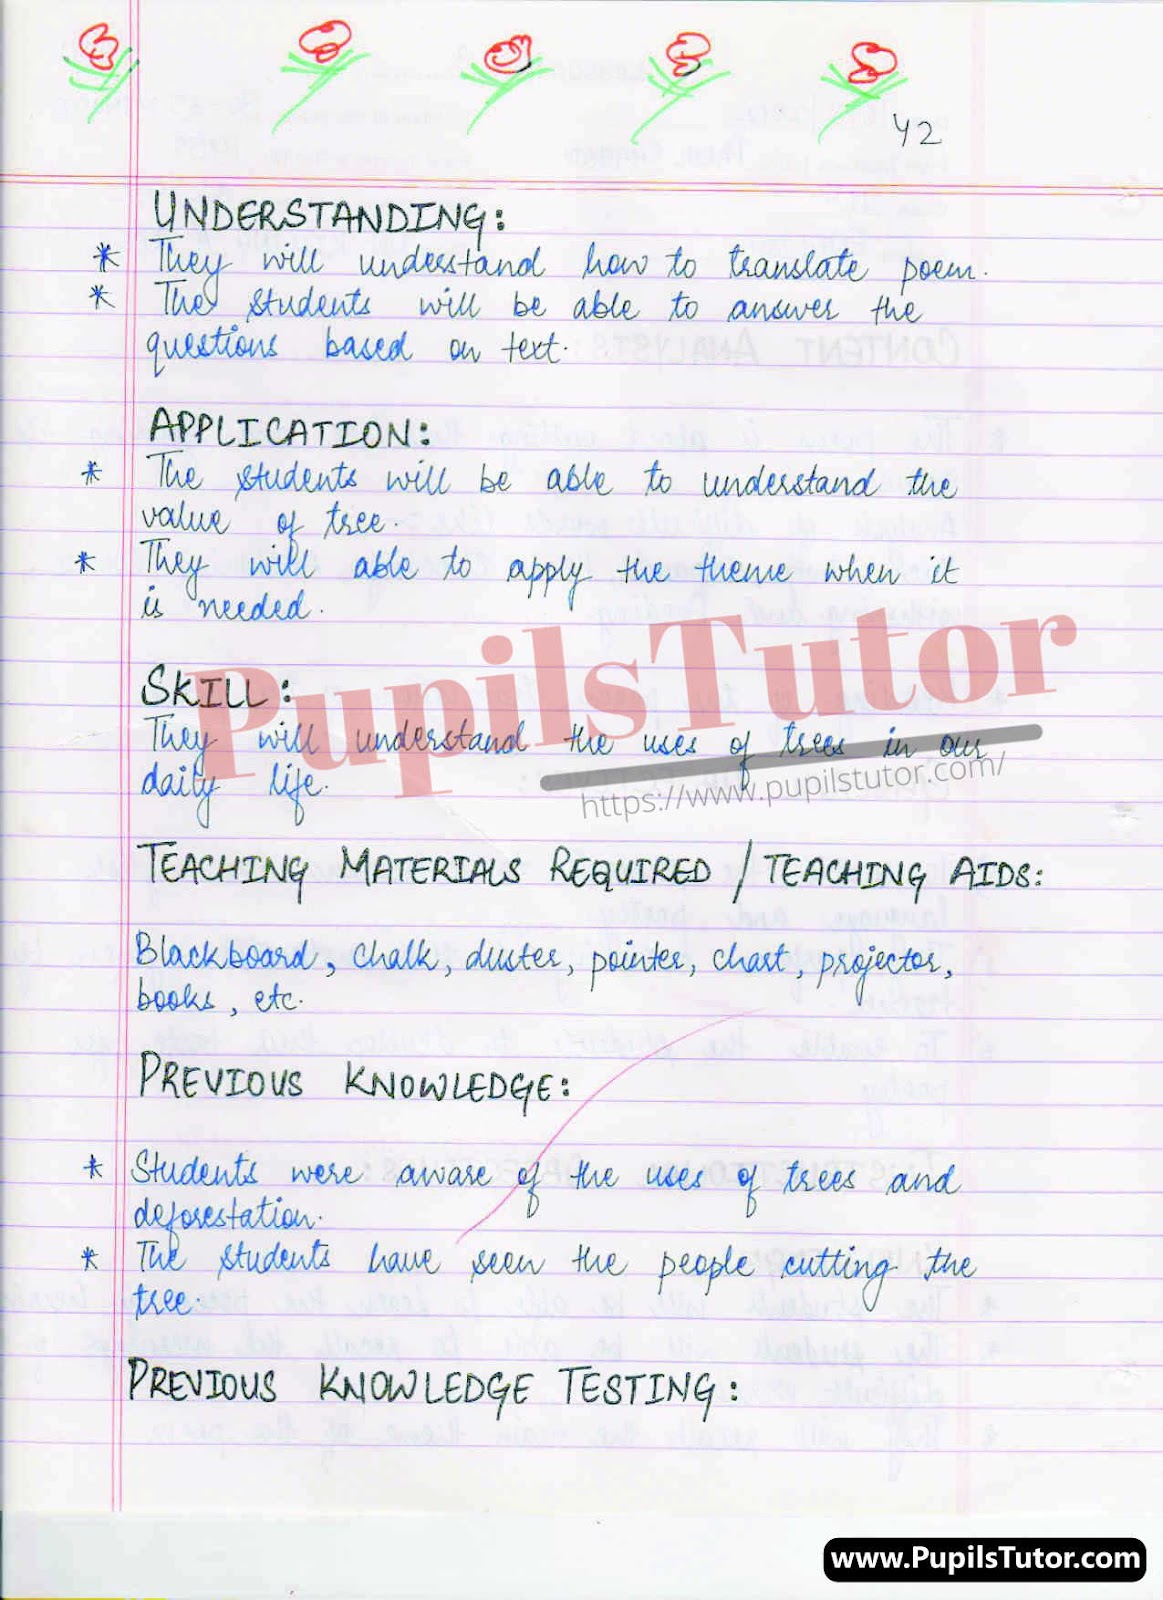 42
UNDERSTANDING:
* They will understand how to translate poem.
* The students will be able to answer the
questions based on text.
APPLICATION:
* The students will be able to understand the
value of tree.
* They will able to apply the theme when it
is needed.
PupilsTutor
SKILL:
They will understand the uses of trees in our
daily life.
https://www.pupilstutor.com/
TEACHING MATERIALS REQUIRED / TEACHING AIDS:
Blackboard, chalk, duster, pointer, chart, projector,
books, etc.
PREVIOUS KNOWLEDGE:
* Students were aware of the uses of trees and
deforestation.
* The students have seen the people cutting the
tree.
PREVIOUS KNOWLEDGE TESTING:
www.PupilsTutor.com